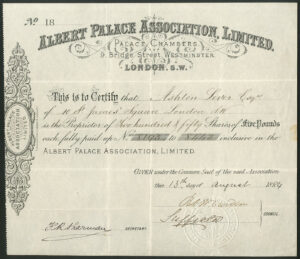 No 18
ALBERT PALACE ASSOCIATION, LIMITED.
PALACE CHAMBERS
9, Bridge Street, Westminster
LONDON. S.W.
This is to Certify that Ashton Lever Esqr.
of 10 St James Square London SW
is the Proprietor of Two hundred & fifty Shares of Five Pounds
each, fully paid up, Nos to inclusive in the
ALBERT PALACE ASSOCIATION, LIMITED.
GIVEN under the Common Seal of the said Association
this 13th day of August 188
COUNCIL
Suffield
SECRETARY